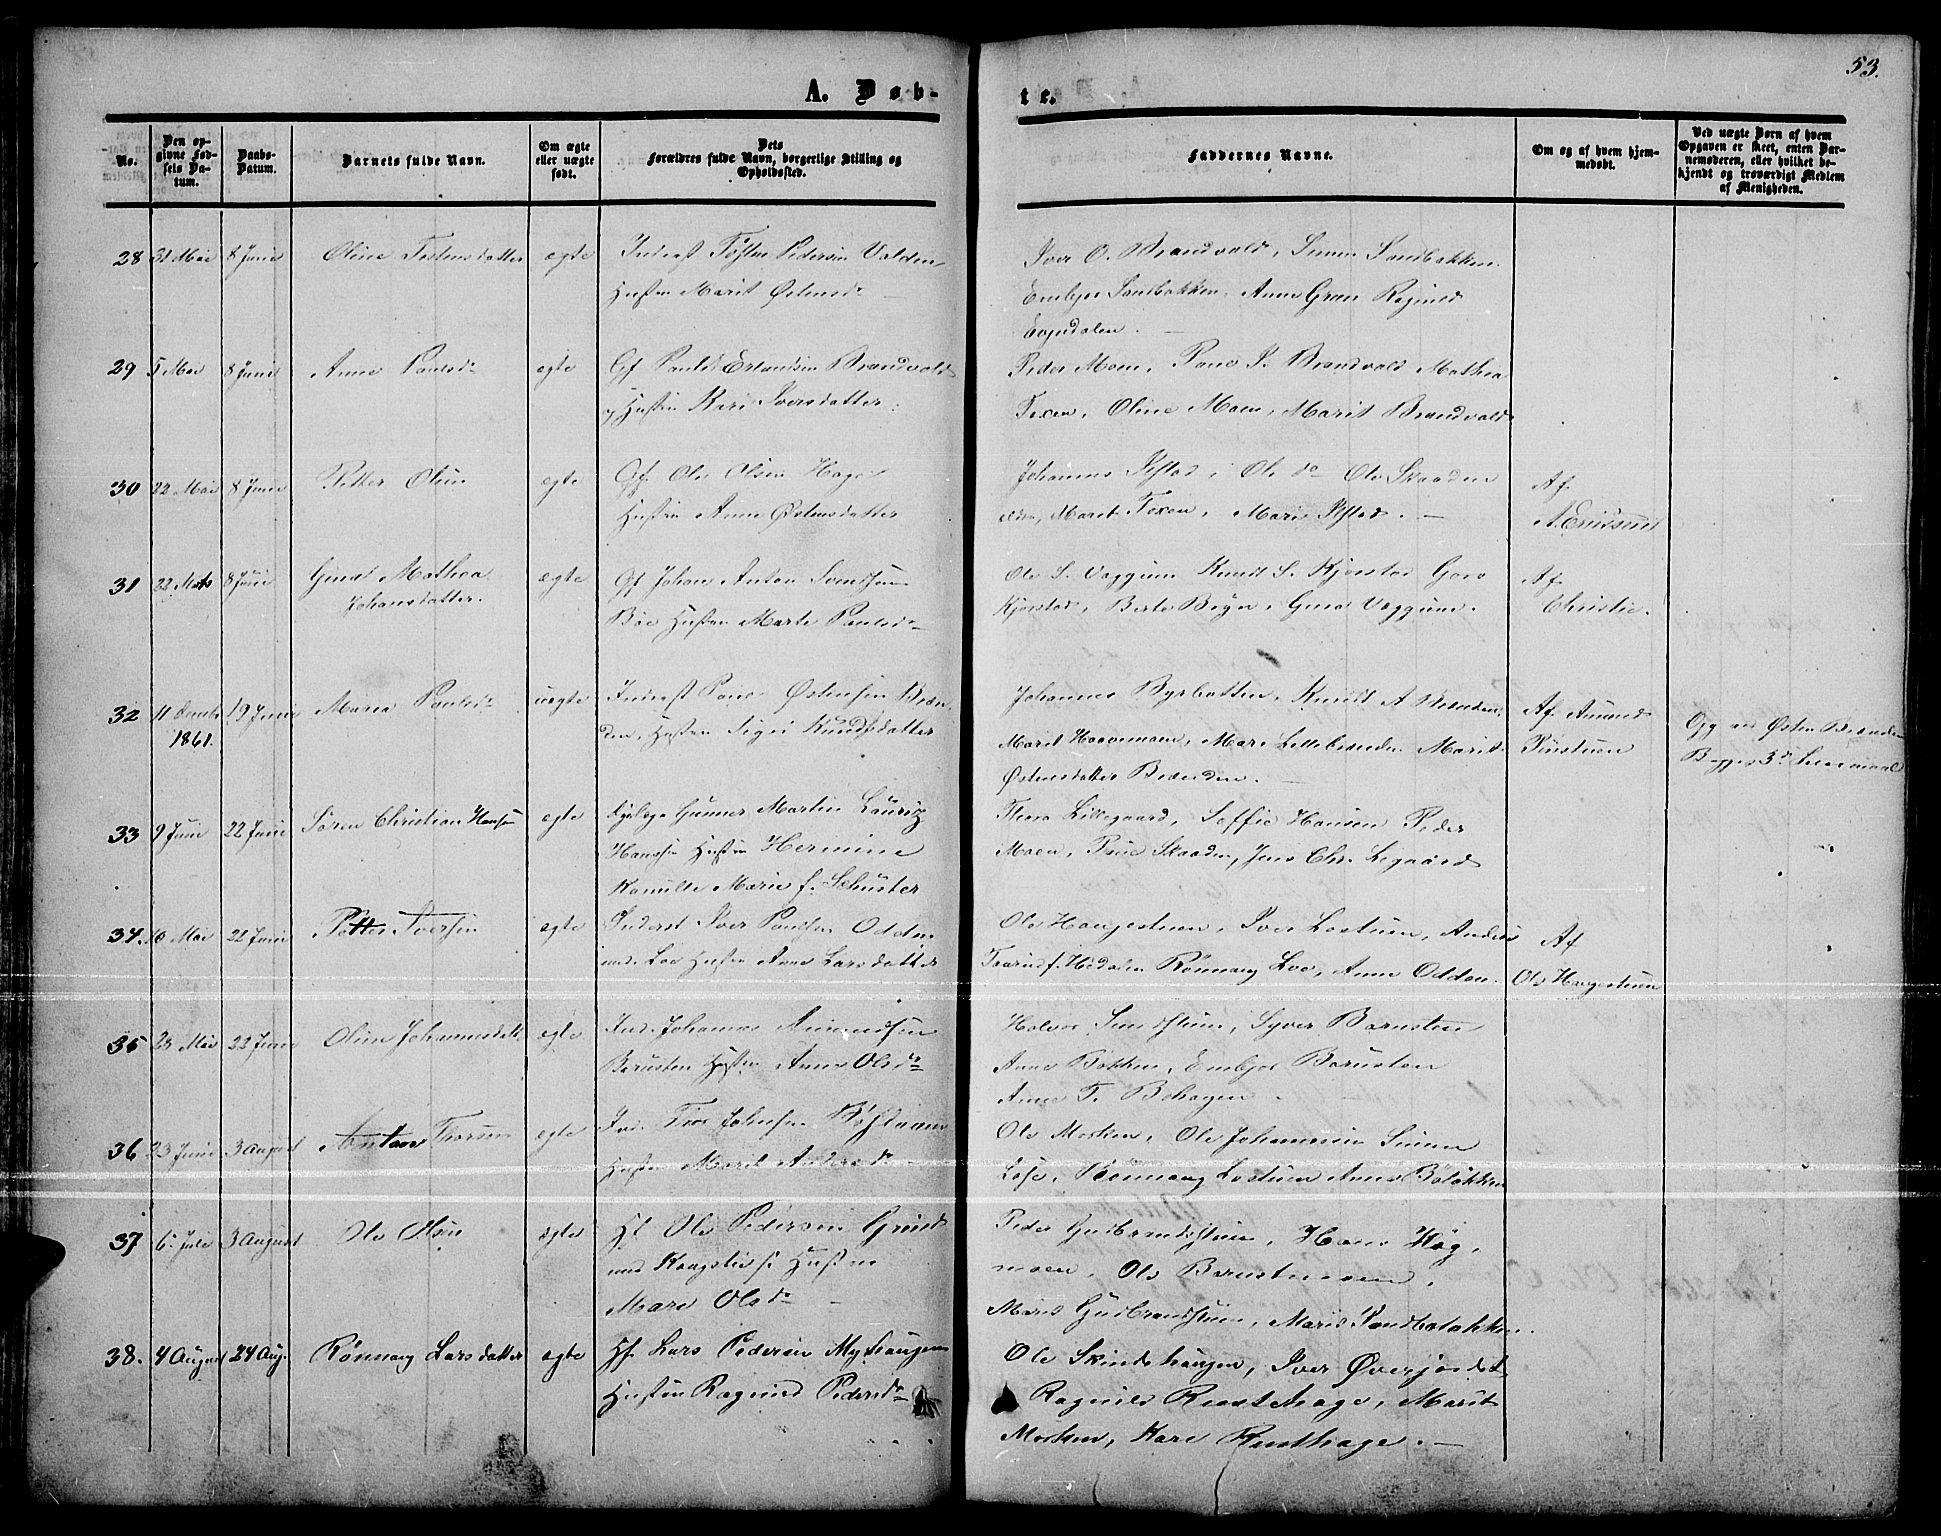 53.
A. Døb-
te.
No.
Den op-
givne Fød-
sels Da-
tum.
Daabs-
Datum.
Barnets fulde Navn.
Om ægte
eller uægte
født.
Dets
Forældres fulde Navn, borgerlige Stilling og
Opholdssted.
Faddernes Navne.
Om og af hvem hjem-
medøbt.
Ved uægte Børn af hvem
Opgaven er skeet, enten Bar-
nemoderen, eller hvilket be-
kjendt og troværdigt Medlem
af Menigheden.
28 31 Mai 8 Juni Oline Tostensdatter ægte Inderst Tosten Pedersen Valden
Hustru Marit Østensd
Iver O. Brandvold, Simen Sandbakken
Embjør Sandbakken, Anne Grøn Ragnild
29 5 Mai 8 Juni Anne Paulsd ægte Gf Paul Erlandsen Brandvold
og Hustru Kari Iversdatter.
Peder Moen, Paul P. Brandvold Mathea
Texen, Oline Moen, Marit Brandvold
30 22 Mai 8 Juni Petter Olsen ægte Gf. Ole Olsen Hage
Hustru Anne Østensdatter
Johannes Ilstad, Ole do Ole Skaaden
Marit Texen, Mari Ilstad. —
Af
31 22 8 Juni Mathea
Johansdatter.
ægte Gf Johan Anton
Bøe Hustru Marte Paulsd
Ole S. Vaggum Knudt S. Kjorstad Goro
Kjorstad, Berte Bøyn, Gina Vaggum.
Af
Christie.
32 11
1861.
19 Juni Maria Paulsd uægte Inderst Paul Østensen Bræn-
den, Hustru Sigri Knudsdatter
Johannes Byrbotten, Knudt A Brænden,
Marit Haavemoen, Mari Lillebrænden Marit
Østensdatter Brænden. —
Af Amund
Opg ved Østen Brænden
Begges 3d Leiermaal
33 9 Juni 22 Juni Søren Christian Hansen ægte Gunner Martin Lauritz
Hansen Hustru Hermine
Kamille Marie f. Schuster
Thora Lillegaard, Soffie Hansen Peder
Moen, Skaaden, Jens Chr. Ligaard
34. 10 Mai 22 Juni Petter Iversen ægte Inderst Iver Paulsen Odden
und. Loe Hustru Anne Larsdatter
Ole Haugestuen, Iver Lostuen, Anders
Hedalen Rønnaug Loe, Anne Odden.
Af
Ole Haugestuen
35 23 Mai 22 Juni Oline Johannesdatt ægte Ind. Johannes Amundsen
Barusten Hustru Anne Olsdr
Halvor Sundstuen, Syver Barusten
Anne Bakken, Embjør Barusten
Anne T. Behagen.
36 23 Juni 3 August Anton Thorsen ægte Ind. Thor Johnsen
Hustru Marit Andersd
Ole Morken, Ole Johannesen Simen
Løse, Rønnaug Lostuen Anne Bolökken
37 6 Juli 3 August Ole Olsen ægte Hf Ole Pedersen Grind
und Kongslie Hustru
Mari Olsdr —
Peder Gudbrandstuen, Hans Høg-
moen, Ole Barustmoen,
Marit Gudbrandstuen, Marit Sandboløkken.
38. 4 August 24 Aug. Rønnaug Larsdatter ægte Hf. Lars Pedersen Myrhaugen
Hustru Ragnild Pedersdr
Ole Skindshaugen, Iver Øverjordet
Ragnild Rusthage, Marit
Morken, Kari Rusthage. —